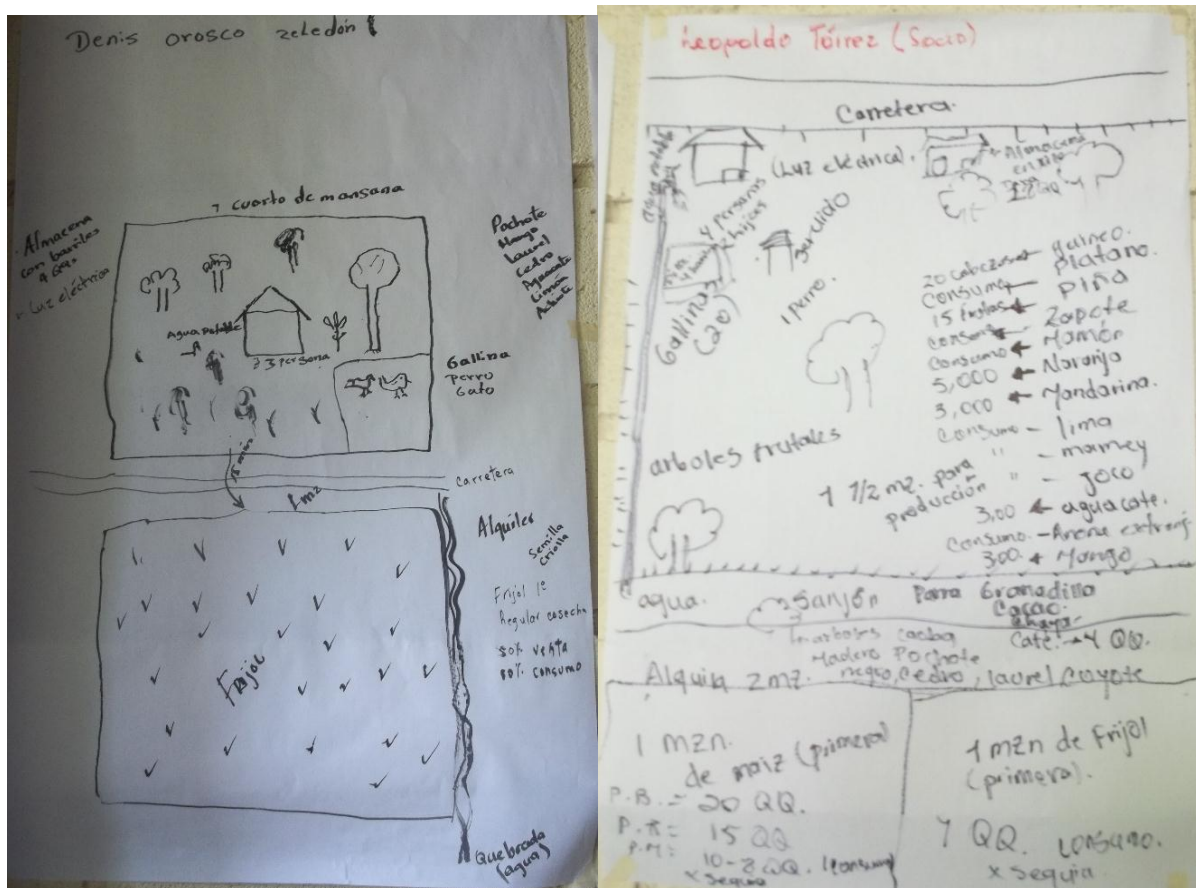 Denis orosco zeledón
1 cuarto de mansana
Almacena
con barriles
Luz eléctrica
Pochote
Mango
Laurel
Cedro
Aguacate
Limón
Agua potable
3 persona
Gallina
Perro
Gato
carretera
1 mz
Alquiler
Semilla
criolla
Frijol 1ª
Regular cosecha
50% venta
50% consumo
Frijol
Quebrada
(agua)
Leopoldo Tóirez (Socio)
Carretera.
(Luz eléctrica).
Almacena
en silo
4 personas
2 hijos
Gallinas
(20)
1 perro.
20 cabezas guineo
Consumo platano.
15 frutas piña
consumo zapote
consumo mamón
5,000 Naranja
3,000 Mandarina.
consumo - lima
" - mamey
" - joco
arboles frutales
1 1/2 mz. para
producción
3,00 aguacate.
consumo. -
300. Mango
agua.
Sanjón Para Granadilla
Cacao.
Café. → 4 QQ.
arboles caoba
Madero Pochote
negro, Cedro, laurel Coyote
Alquila 2 mz.
1 mzn.
de maiz (primera)
P.B. = 20 QQ.
P.R = 15 QQ
P.M = 10-8 QQ. (consumo)
x sequia
1 mzn de Frijol
(primera).
QQ. consumo.
x sequia